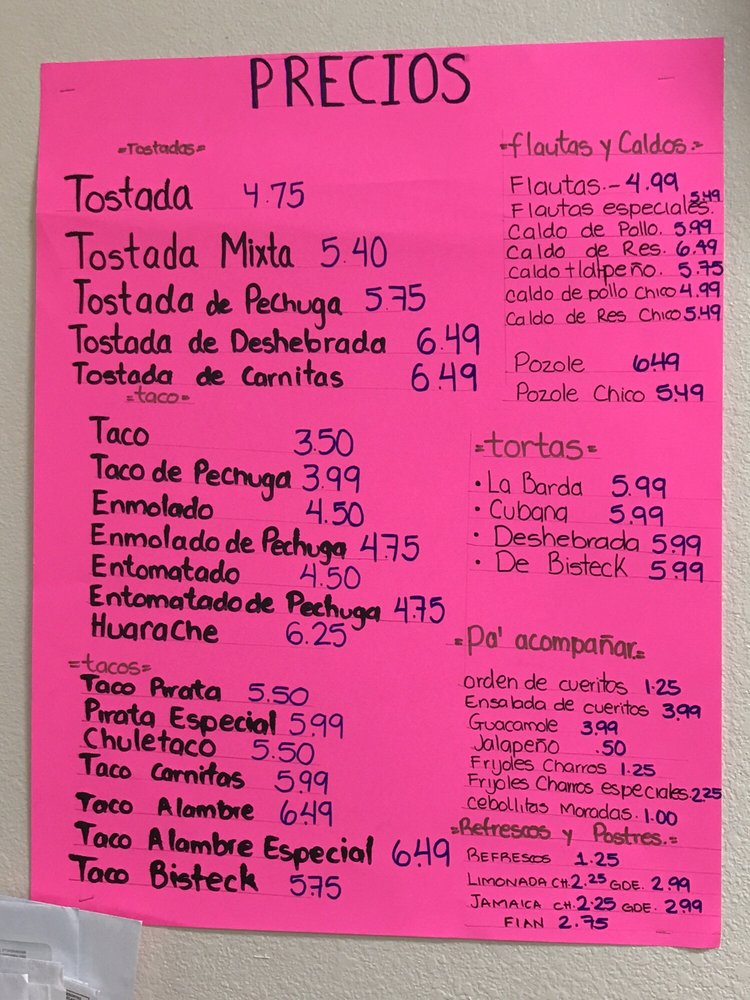 PRECIOS
=Tostadas=
Tostada 4.75
Tostada Mixta 5.40
Tostada de Pechuga 5.75
Tostada de Deshebrada 6.49
Tostada de Carnitas 6.49
=taco=
Taco 3.50
Taco de Pechuga 3.99
Enmolado 4.50
Enmolado de Pechuga 4.75
Entomatado 4.50
Entomatado de Pechuga 4.75
Huarache 6.25
=tacos=
Taco Pirata 5.50
Pirata Especial 5.99
Chuletaco 5.50
Taco Carnitas 5.99
Taco Alambre 6.49
Taco Alambre Especial 6.49
Taco Bisteck 5.75
=flautas y Caldos.=
Flautas.- 4.99
Flautas especiales. 5.49
Caldo de Pollo. 5.99
Caldo de Res. 6.49
caldo tlalpeño. 5.75
caldo de pollo Chico 4.99
Caldo de Res Chico 5.49
Pozole 6.49
Pozole Chico 5.49
=tortas=
· La Barda 5.99
· Cubana 5.99
· Deshebrada 5.99
· De Bisteck 5.99
=Pa' acompañar.=
orden de cueritos 1.25
Ensalada de cueritos 3.99
Guacamole 3.99
Jalapeño .50
Frijoles Charros 1.25
Frijoles Charros especiales. 2.25
cebollitas Moradas. 1.00
=Refrescos y Postres.=
REFRESCOS 1.25
LIMONADA CH. 2.25 GDE. 2.99
JAMAICA CH. 2.25 GDE. 2.99
FlAN 2.75